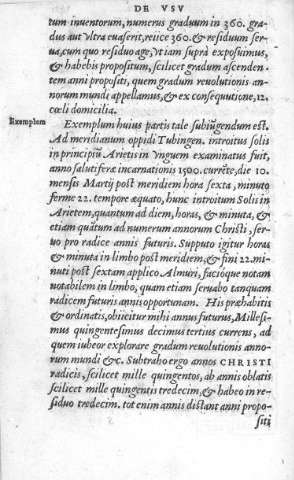 DE VSV
tum inuentorum, numerus graduum in 360. gra-
dus aut vltra euaserit, reiice 360. & residuum ser-
ua, cum quo residuo age, vt iam suprà exposuimus,
& habebis propositum, scilicet gradum ascenden.
tem anni propositi, quem gradum reuolutionis an-
norum mundi appellamus, & ex consequutione, 12.
cœli domicilia.
Exemplum
Exemplum huius partis tale subiũgendum est.
Ad meridianum oppidi Tubingen. introitus solis
in principiũ Arietis in Ynguem examinatus fuit,
anno salutiferæ incarnationis 1500. currẽte, die 10.
mensis Martij post meridiem hora sexta, minuto
ferme 22. tempore æquato, hunc introitum Solis in
Arietem, quantum ad diem, horas, & minuta, &
etiam quãtum ad numerum annorum Christi, ser-
uo pro radice annis futuris. Supputo igitur horas
& minuta in limbo post meridiem, & fini 22. mi-
nuti post sextam applico Almuri, facióque notam
notabilem in limbo, quam etiam seruabo tanquam
radicem futuris annis opportunam. His præhabitis
& ordinatis, obiicitur mihi annus futurus, Millesi-
mus quingentesimus decimus tertius currens, ad
quem iubeor explorare gradum reuolutionis anno-
rum mundi &c. Subtraho ergo annos CHRISTI
radicis, scilicet mille quingentos, ab annis oblatis
scilicet mille quingentis tredecim, & habeo in re-
siduo tredecim. tot enim annis distant anni propo-
siti